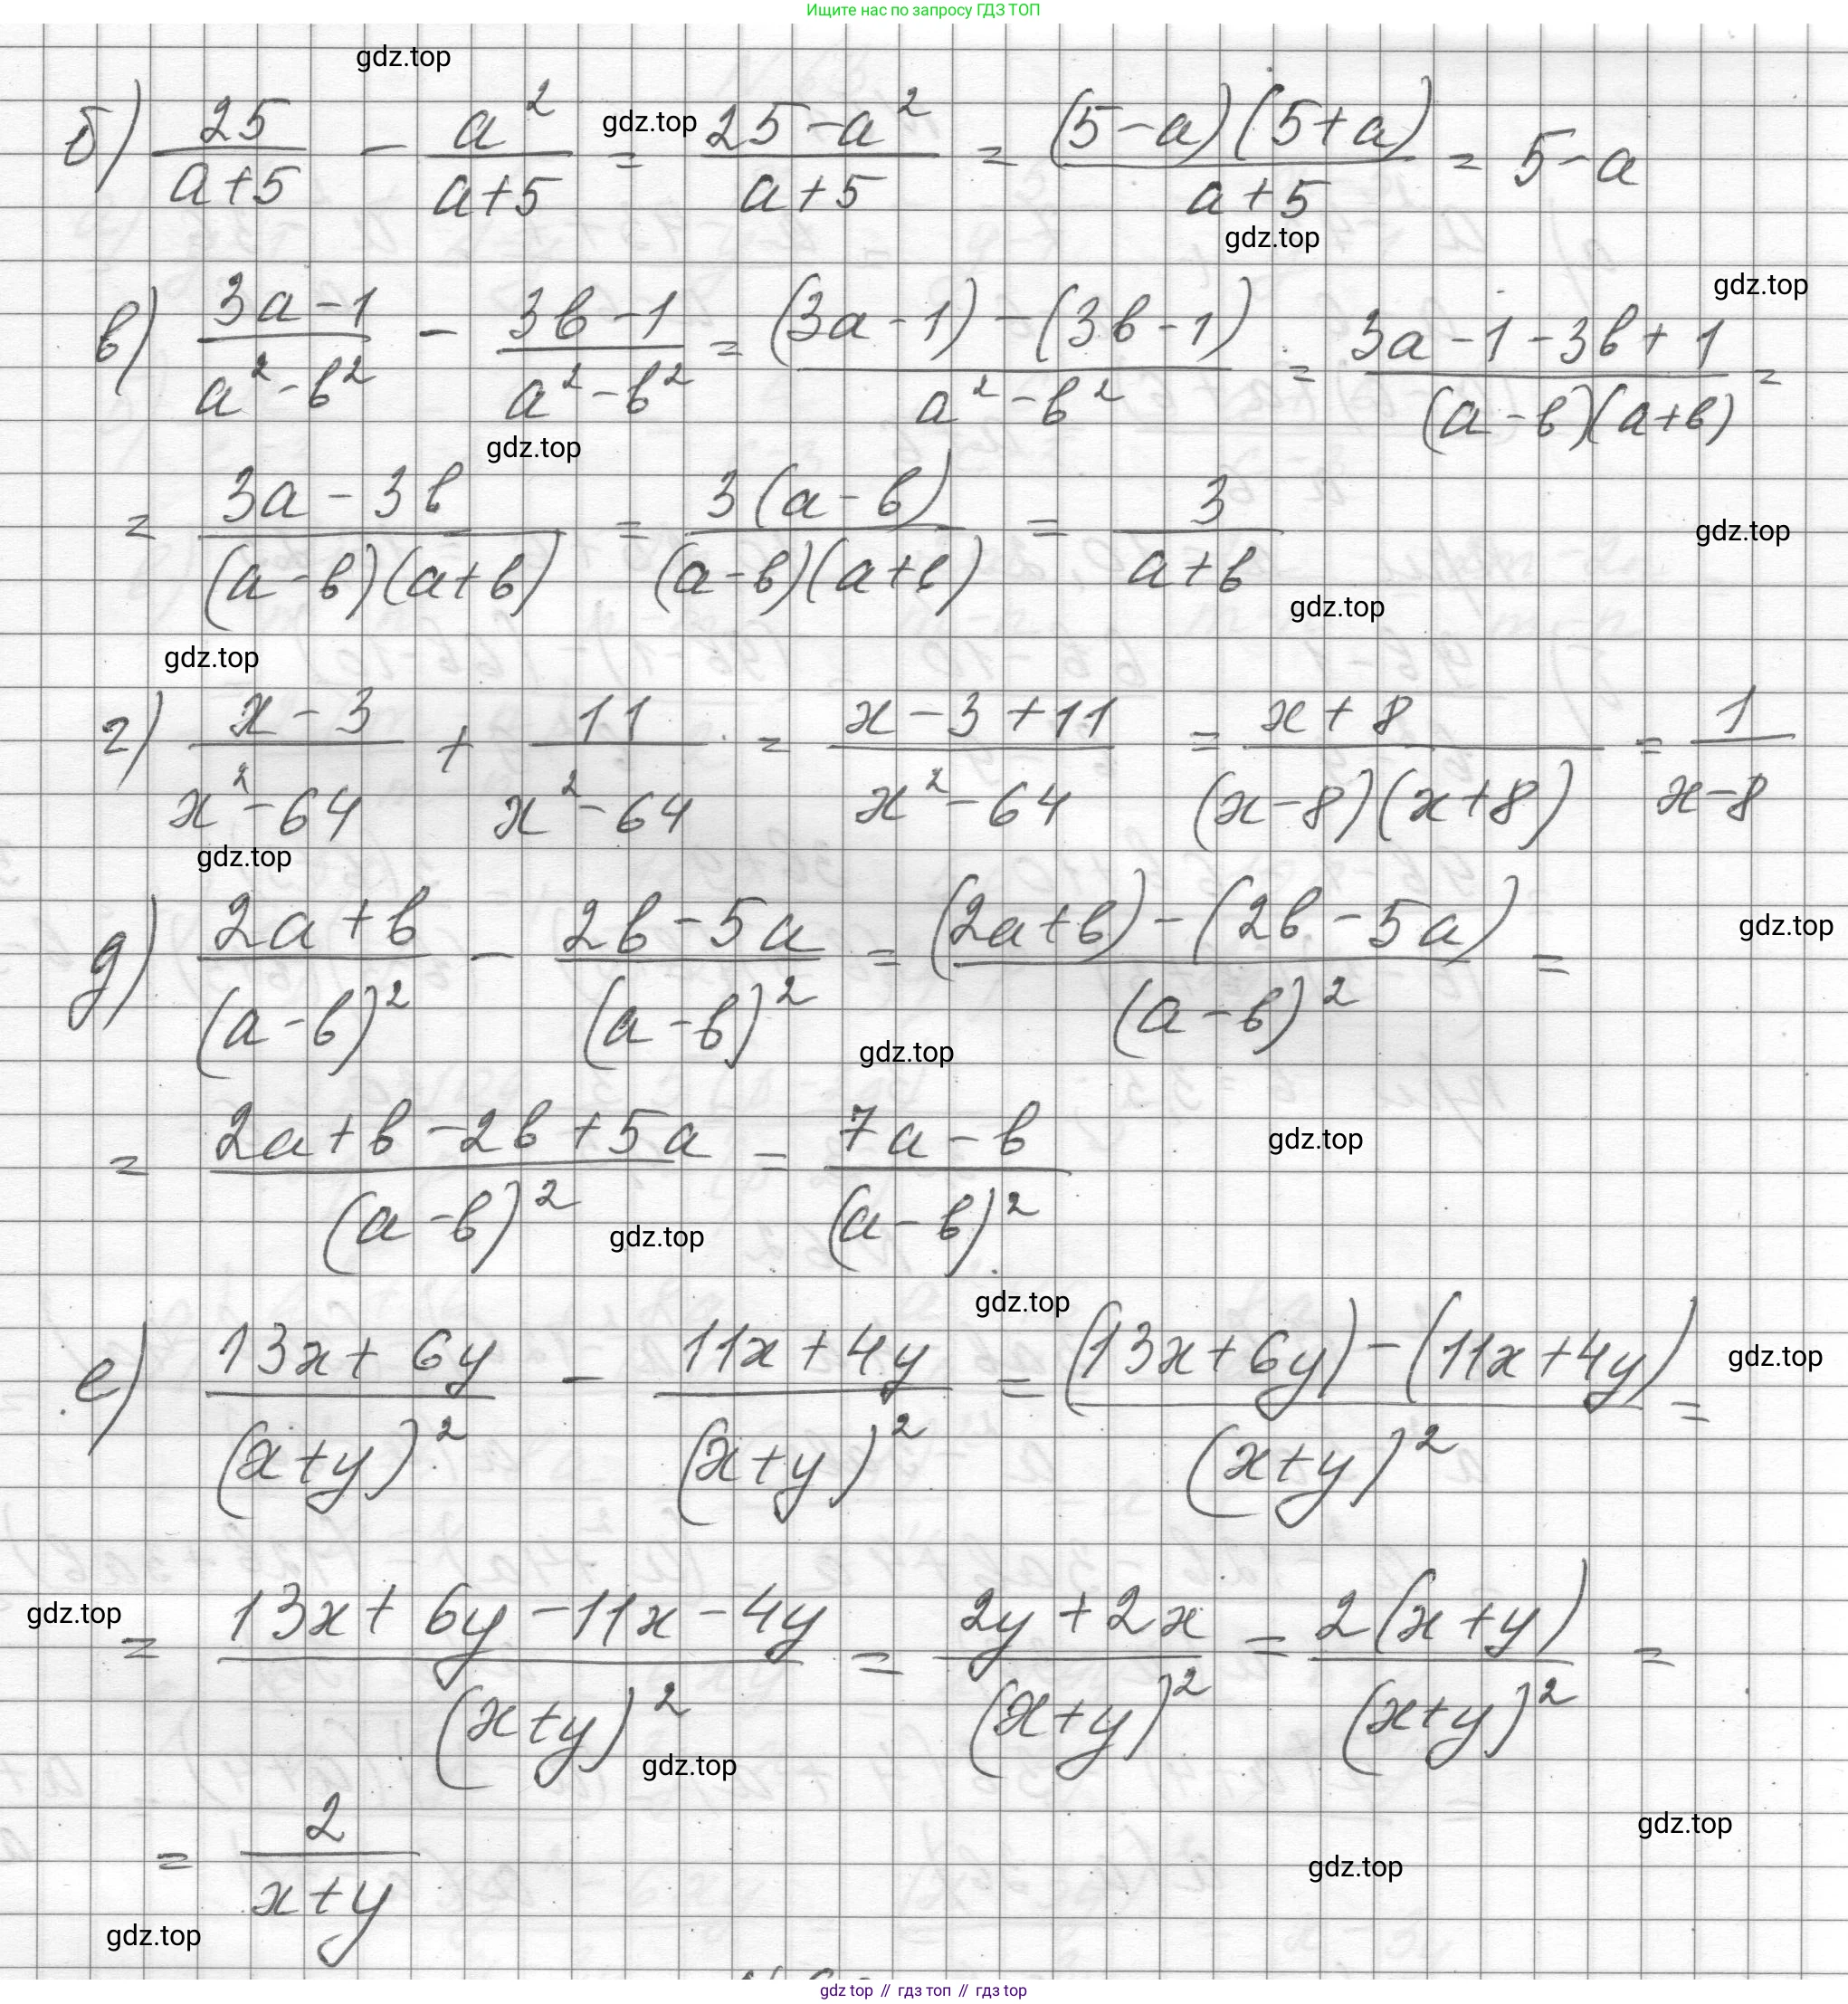 Ищите нас по запросу ГДЗ ТОП
gdz.top
б) 25/(a+5) - a²/(a+5) = (25-a²)/(a+5) = (5-a)(5+a)/(a+5) = 5-a
gdz.top
gdz.top
gdz.top
в) (3a-1)/(a²-b²) - (3b-1)/(a²-b²) = ((3a-1)-(3b-1))/(a²-b²) = (3a-1-3b+1)/((a-b)(a+b)) =
gdz.top
= (3a-3b)/((a-b)(a+b)) = 3(a-b)/((a-b)(a+b)) = 3/(a+b)
gdz.top
gdz.top
gdz.top
г) (x-3)/(x²-64) + 11/(x²-64) = (x-3+11)/(x²-64) = (x+8)/((x-8)(x+8)) = 1/(x-8)
gdz.top
д) (2a+b)/(a-b)² - (2b-5a)/(a-b)² = ((2a+b)-(2b-5a))/(a-b)² =
gdz.top
gdz.top
= (2a+b-2b+5a)/(a-b)² = (7a-b)/(a-b)²
gdz.top
gdz.top
gdz.top
е) (13x+6y)/(x+y)² - (11x+4y)/(x+y)² = ((13x+6y)-(11x+4y))/(x+y)² =
gdz.top
gdz.top
= (13x+6y-11x-4y)/(x+y)² = (2y+2x)/(x+y)² = 2(x+y)/(x+y)² =
gdz.top
= 2/(x+y)
gdz.top
gdz.top
gdz.top
gdz top // гдз топ // гдз top